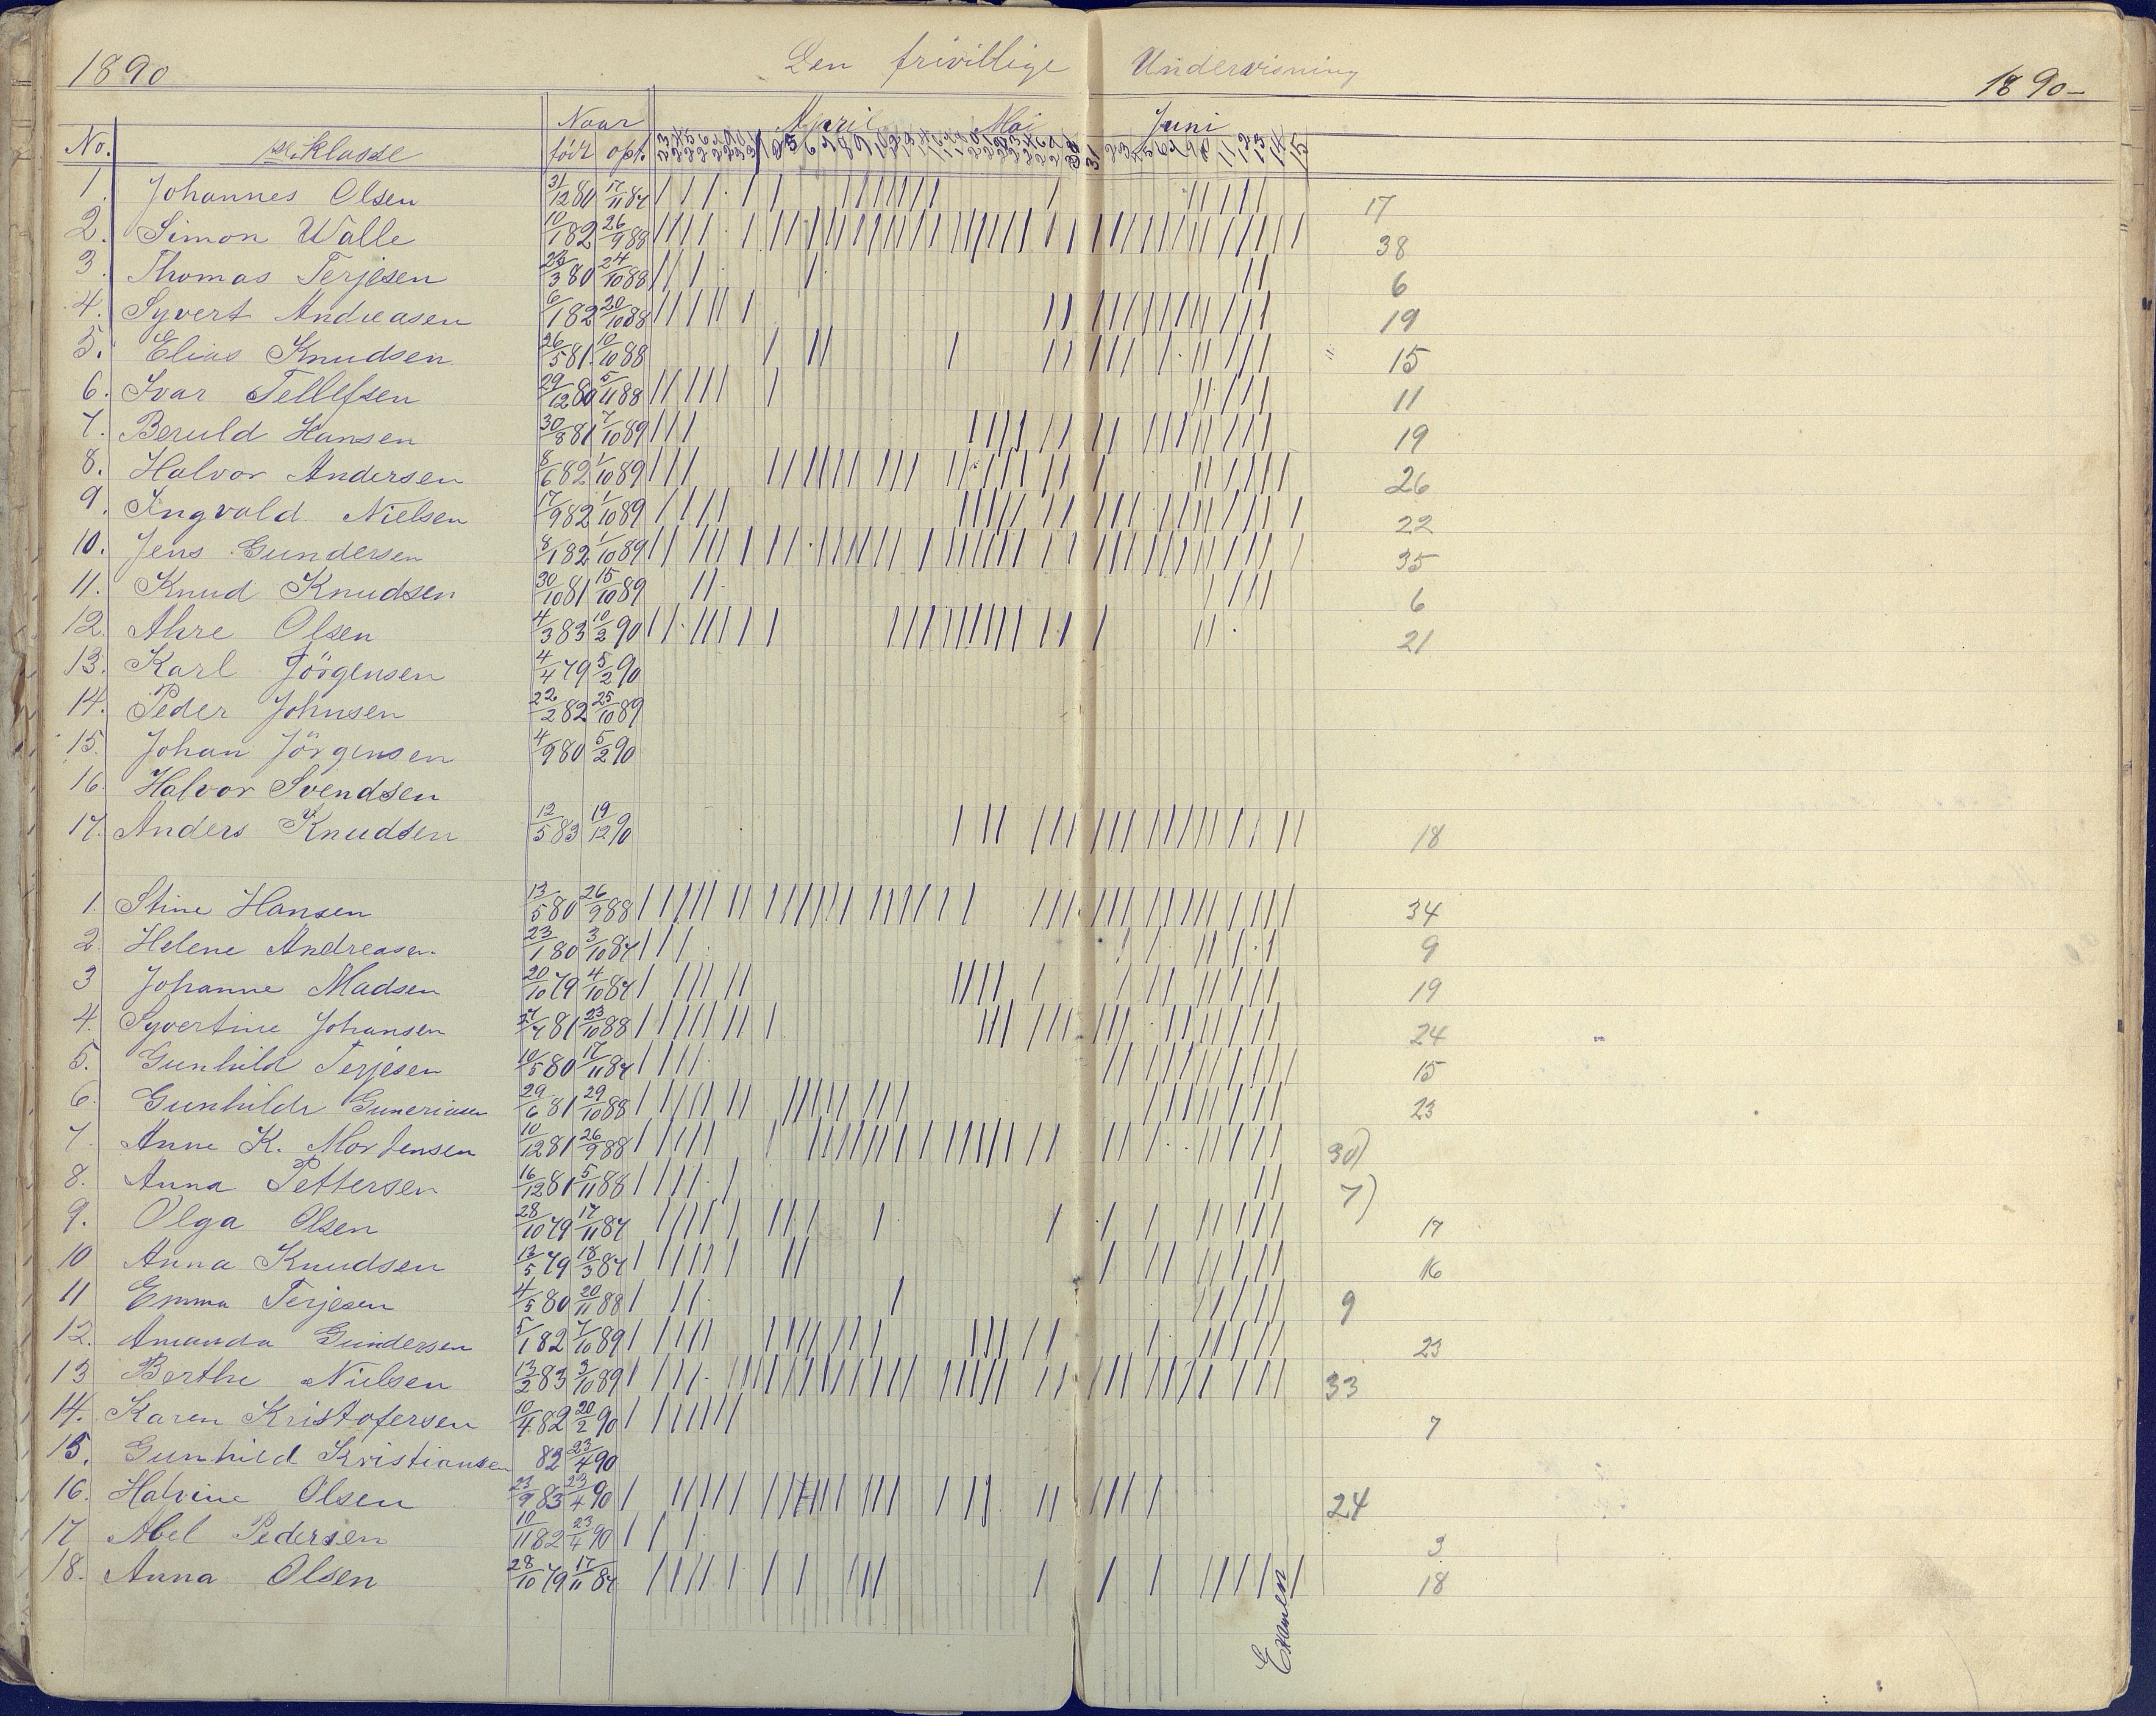 1890 Den frivillige Undervisning 1890-
Naar April Mai Juni
No. Klasse født opt.
1. Johannes Olsen 31/12 80 17/11 87 17
2. Simon Walle 10/1 82 26/9 88 38
3. Thomas Terjesen 26/3 80 24/10 88 6
4. Syvert Andreasen 6/1 82 20/10 88 19
5. Elias Knudsen 26/5 81 10/10 88 " 15
6. Ivar Tellefsen 29/12 80 5/11 88 11
7. Beruld Hansen 30/8 81 7/10 89 19
8. Halvor Andersen 8/6 82 1/10 89 26
9. Ingvald Nielsen 17/9 82 1/10 89 22
10. Jens Gundersen 8/1 82 1/10 89 35
11. Knud Knudsen 30/10 81 15/10 89 6
12. Ahre Olsen 4/3 83 10/2 90 21
13. Karl Jörgensen 4/4 79 5/2 90
14. Peder Johnsen 22/2 82 25/10 89
15. Johan Jörgensen 4/9 80 5/2 90
16. Halvor Svendsen
17. Anders Knudsen 12/5 83 19/12 90 18
1. Stine Hansen 13/5 80 26/9 88 34
2. Helene Andreasen 23/1 80 3/10 87 9
3 Johanne Madsen 20/10 79 4/10 87 19
4. Syvertine Johansen 27/7 81 23/10 88 24
5. Gunhild Terjesen 10/5 80 17/11 87 15
6. Gunhilde Guneriusen 29/6 81 29/10 88 23
7. Anne K. Mortensen 10/12 81 26/9 88 30)
8. Anna Pettersen 16/12 81 5/11 88 7)
9. Olga Olsen 28/10 79 17/11 87 17
10 Anna Knudsen 13/5 79 18/3 87 16
11 Emma Terjesen 4/5 80 20/11 88 9
12. Amanda Gundersen 5/1 82 7/10 89 23
13 Berthe Nielsen 13/2 83 3/10 89 33
14. Karen Kristofersen 10/4 82 20/2 90 7
15. Gunhild Kristiansen 82 23/4 90
16. Halvine Olsen 23/9 83 23/4 90 24
17 Abel Pedersen 10/11 82 23/4 90 3
18. Anna Olsen 28/10 79 17/11 87 18
Examen